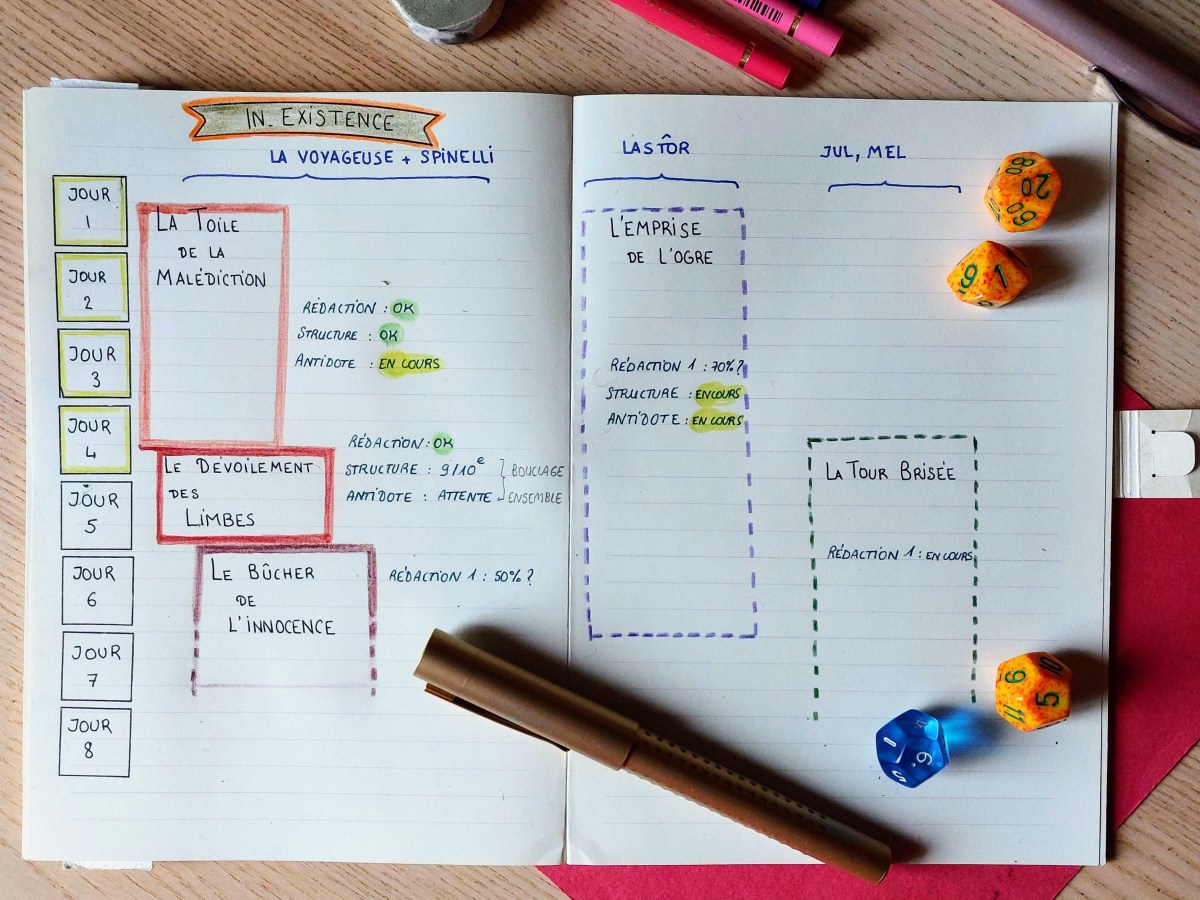 IN_EXISTENCE
LA VOYAGEUSE + SPINELLI
JOUR
1
JOUR
2
JOUR
3
JOUR
4
JOUR
5
JOUR
6
JOUR
7
JOUR
8
LA TOILE
DE LA
MALÉDICTION
RÉDACTION : OK
STRUCTURE : OK
ANTIDOTE : EN COURS
LE DÉVOILEMENT
DES
LIMBES
RÉDACTION : OK
STRUCTURE : 9/10e
ANTIDOTE : ATTENTE
BOUCLAGE
ENSEMBLE
LE BÛCHER
DE
L'INNOCENCE
RÉDACTION 1 : 50% ?
LASTÔR
L'EMPRISE
DE L'OGRE
RÉDACTION 1 : 70% ?
STRUCTURE : EN COURS
ANTIDOTE : EN COURS
JUL, MEL
LA TOUR BRISÉE
RÉDACTION 1 : EN COURS
80
20
60
9
1
10
9
5
11
6